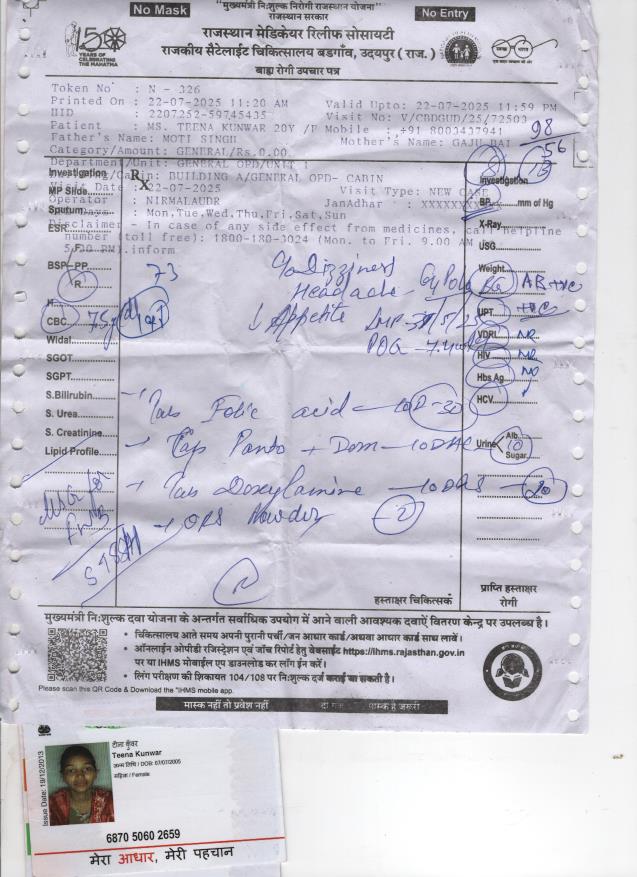 No Mask
"मुख्यमंत्री निःशुल्क निरोगी राजस्थान योजना"
No Entry
राजस्थान सरकार
राजस्थान मेडिकेयर रिलीफ सोसायटी
राजकीय सैटेलाईट चिकित्सालय बडगाँव, उदयपुर ( राज. )
बाह्य रोगी उपचार पत्र
YEARS OF CELEBRATING THE MAHATMA
Token No : N - 326
Printed On : 22-07-2025 11:20 AM Valid Upto: 22-07-2025 11:59 PM
HID : 2207252-59745435 Visit No: V/CBDGUD/25/72503
Patient : MS. TEENA KUNWAR 20Y /F Mobile : +91 8003437941
Father's Name: MOTI SINGH Mother's Name: GAJU BAI
98
56
Category/Amount: GENERAL/Rs.0.00
Department/Unit: GENERAL OPD/UNIT 1
Cabin: BUILDING A/GENERAL OPD- CABIN
Visit Date : 22-07-2025 Visit Type: NEW CASE
Operator : NIRMALAUDR JanAdhar :
Days : Mon,Tue,Wed,Thu,Fri,Sat,Sun
Disclaimer - In case of any side effect from medicines, call helpline
number (toll free): 1800-180-3024 (Mon. to Fri. 9.00 AM
PM).inform
Investigation
MP Slide
Sputum
ESR
F.
BSP PP.
R
73
H
CBC
Widal
SGOT
SGPT
S.Bilirubin
S. Urea
S. Creatinine
Lipid Profile
Rx
c/o Dizziness
Headache
↓ Appetite
LMP-
POG - 7.4 week
Tab Folic acid — 1OD - 30
Cap Panto + Dom — 1OD AC
Tab Doxylamine — 1OD HS
ORS Powder
Investigation
BP mm of Hg
X-Ray
USG
Weight
BG AB+ve
UPT +ve
VDRL NR
HIV NR
Hbs Ag
HCV
Urine Alb.
Sugar
10
हस्ताक्षर चिकित्सक
प्राप्ति हस्ताक्षर
रोगी
मुख्यमंत्री निःशुल्क दवा योजना के अन्तर्गत सर्वाधिक उपयोग में आने वाली आवश्यक दवाऐं वितरण केन्द्र पर उपलब्ध है।
• चिकित्सालय आते समय अपनी पुरानी पर्ची/जन आधार कार्ड/अथवा आधार कार्ड साथ लावें।
• ऑनलाईन ओपीडी रजिस्ट्रेशन एवं जाँच रिपोर्ट हेतु वेबसाईट https://ihms.rajasthan.gov.in
पर या IHMS मोबाईल एप डाउनलोड कर लॉग ईन करें।
• लिंग परीक्षण की शिकायत 104/108 पर निःशुल्क दर्ज कराई जा सकती है।
Please scan this QR Code & Download the "IHMS mobile app.
मास्क नहीं तो प्रवेश नहीं
मास्क है जरूरी
Issue Date: 19/12/2013
टीना कुंवर
Teena Kunwar
जन्म तिथि / DOB: 07/07/2005
महिला / Female
6870 5060 2659
मेरा आधार, मेरी पहचान